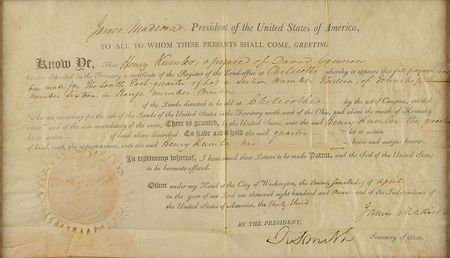 James Madison, President of the United States of America,
TO ALL TO WHOM THESE PRESENTS SHALL COME, GREETING
Know Ye, That Henry Kumler assignee of David
having deposited in the Treasury a certificate of the Register of the Land-office at Chilicothe whereby it appears that full payment
been made for The South East quarter of section number of Township
number Sixteen, in Range number
of the Lands directed to be sold at Chilicothe by the act of Congress, entitled
An act providing for the sale of the Lands of the United States in the Territory north-west of the Ohio, and above the mouth of Kentucky
river, and of the acts amendatory of the same, There is granted, by the United States, unto the said Henry Kumler the quarter
lot or section of land above described: To have and to hold the said quarter lot or section
of land, with the appurtenances, unto the said Henry Kumler his heirs and assigns forever.
In testimony whereof, I have caused these Letters to be made Patent, and the Seal of the United States
to be hereunto affixed.
Given under my Hand at the City of Washington, the day of April
in the year of our Lord one thousand eight hundred and nine and of the Independence of
the United States of America, the thirty third
James Madison
BY THE PRESIDENT,
R Smith Secretary of State.